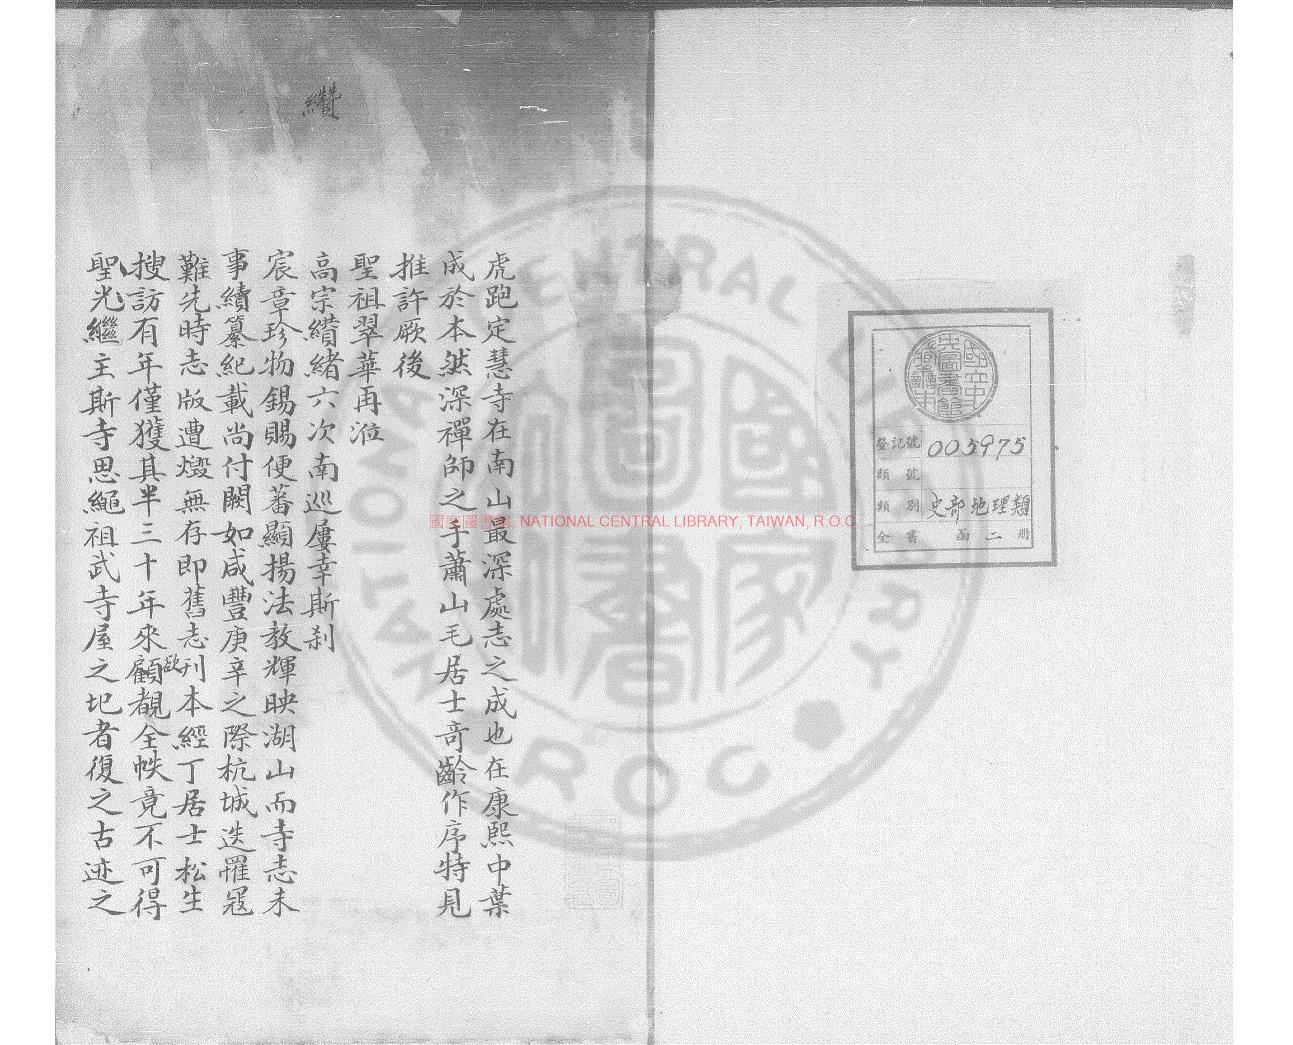 國立中央圖書館藏書本
登記號 005975
類號
類別 史部地理類
全書 函二冊
虎跑定慧寺在南山最深處志之成也在康熙中葉
成於本然深禪師之手蕭山毛居士奇齡作序特見
推許厥後
聖祖翠華再涖
高宗纘緒六次南巡屢幸斯刹
宸章珍物錫賜便蕃顯揚法教輝映湖山而寺志未
事續纂紀載尚付闕如咸豐庚辛之際杭城迭罹寇
難先時志版遭燬無存即舊志刊本經丁居士松生
搜訪有年僅獲其半三十年來顧欲覩全帙竟不可得
聖光繼主斯寺思繩祖武寺屋之圮者復之古迹之
纘
國家圖書館, NATIONAL CENTRAL LIBRARY, TAIWAN, R.O.C
NATIONAL CENTRAL LIBRARY
R O C
國家圖書